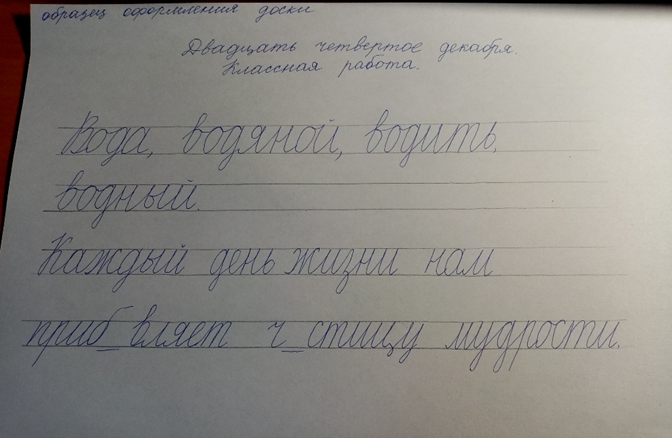 образец оформления доски
Двадцать четвертое декабря.
Классная работа.
Вода, водяной, водить,
водный.
Каждый день жизни нам
приб_вляет ч_стицу мудрости.